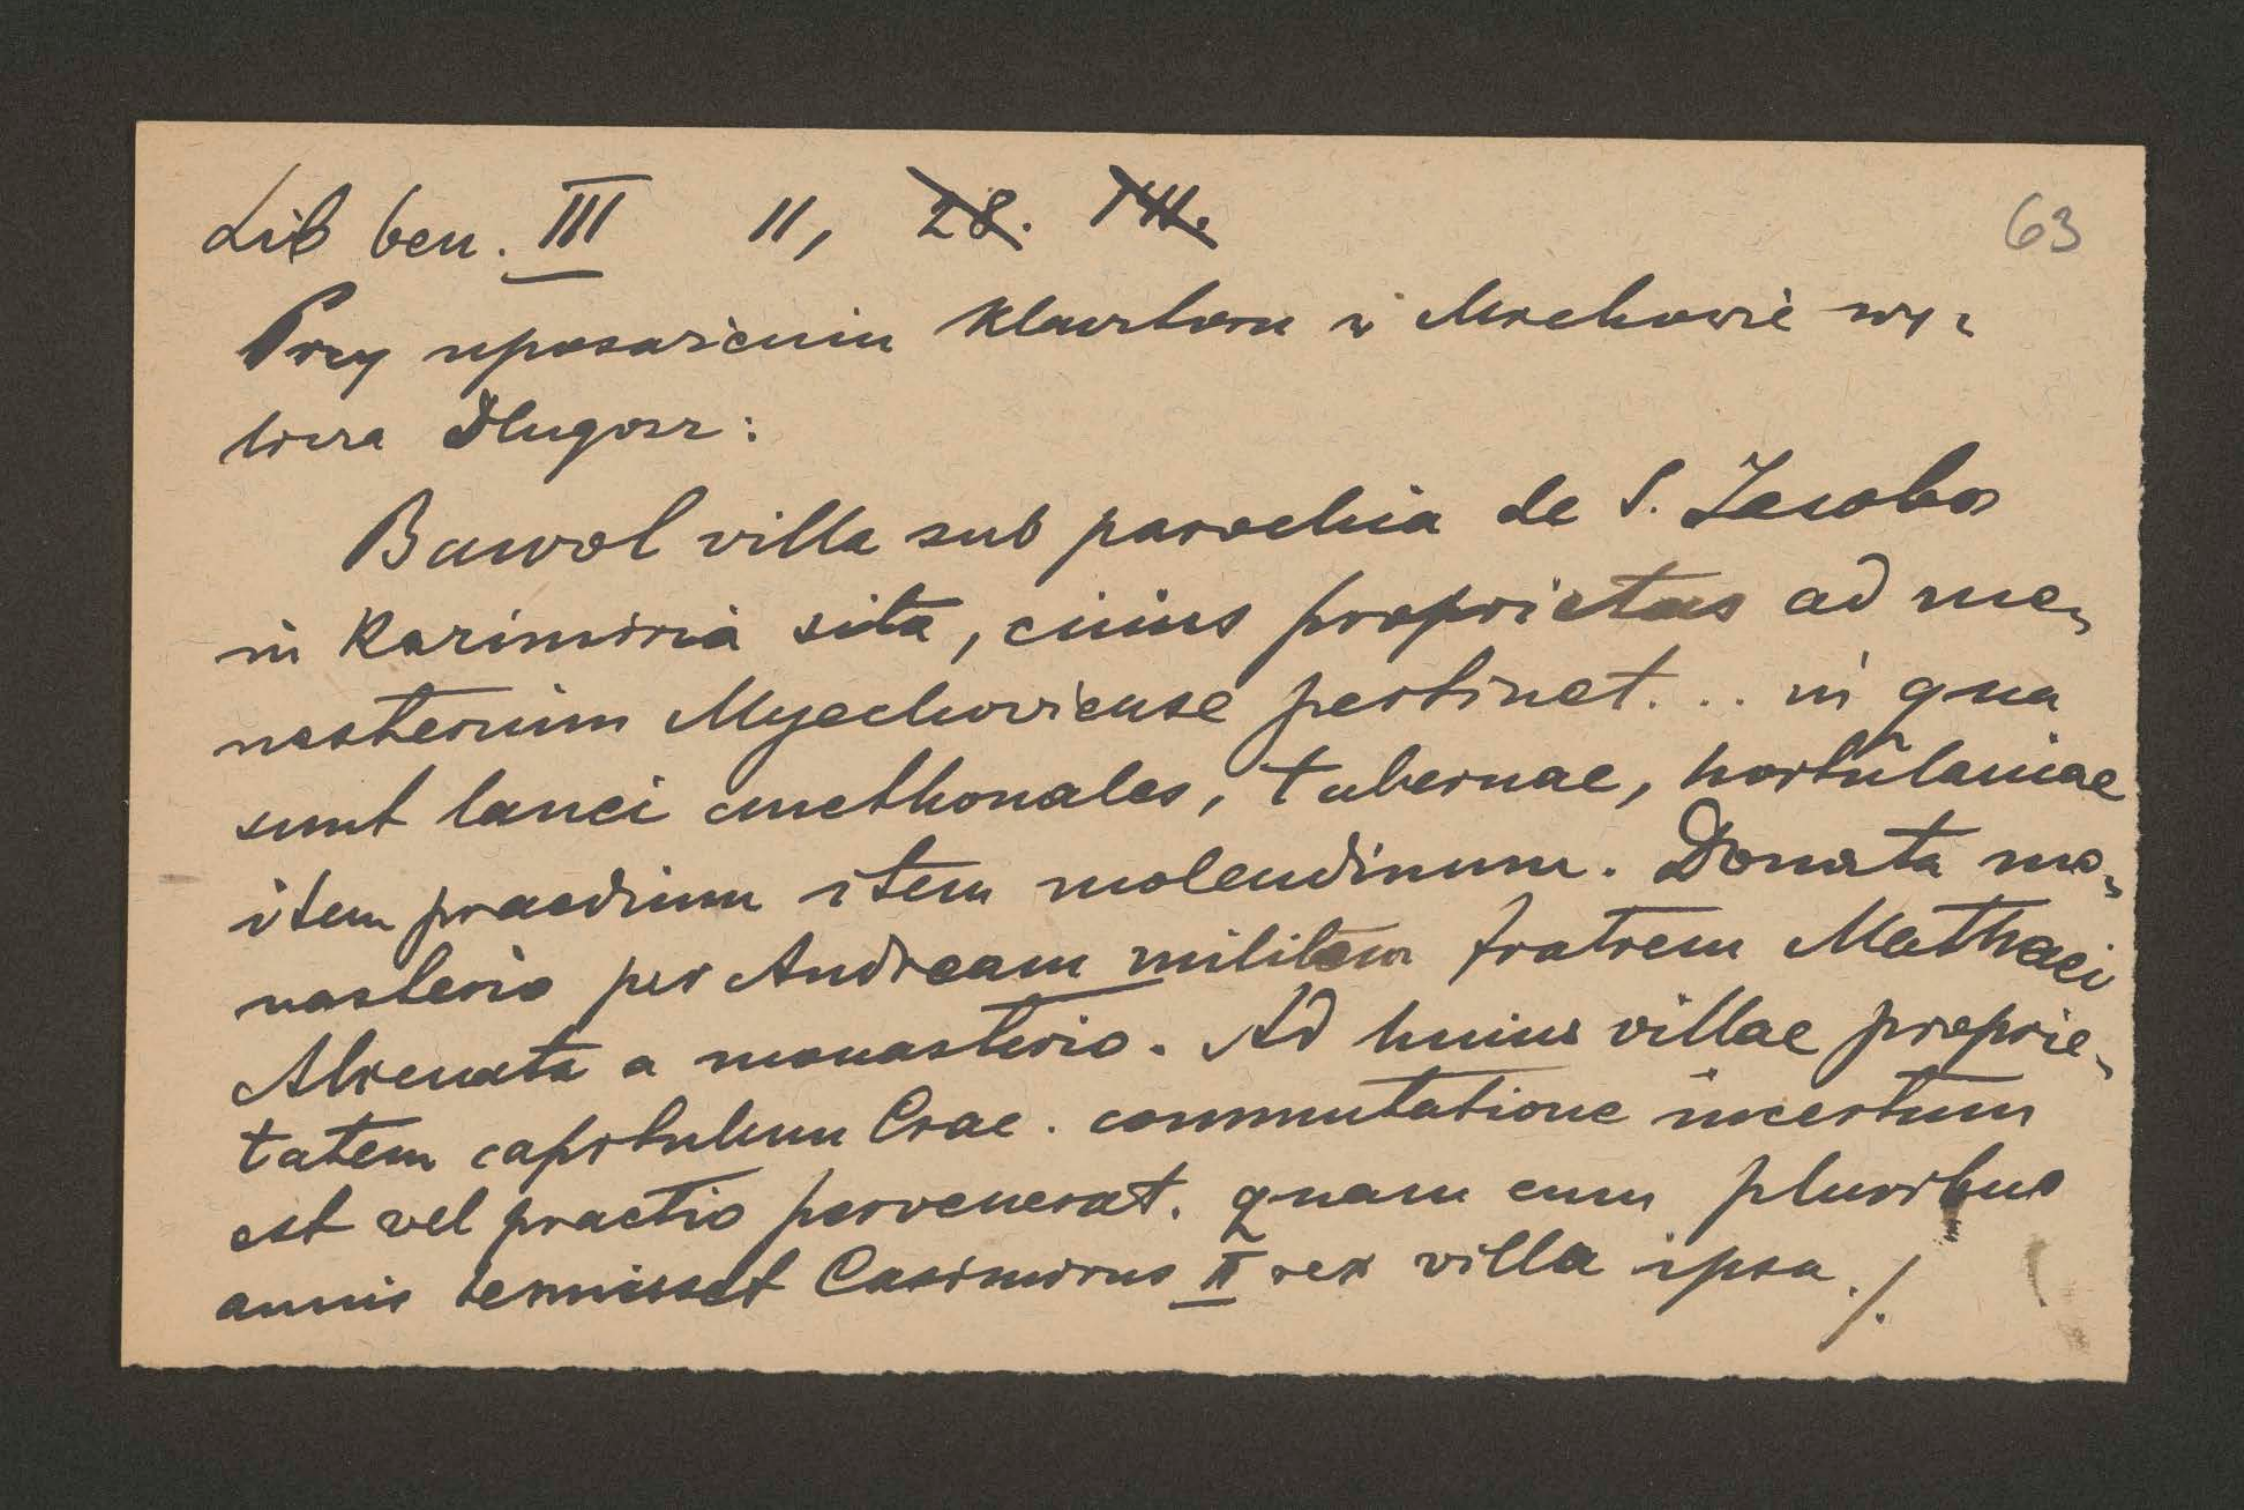 Lib ben. III 11, 28. VIII. 63
Przy uposażeniu klasztoru w Miechowie wy-
licza Długosz:
Bawol villa sub parochia de S. Jacobo
in Kazimiria sita, cuius proprietas ad mo-
nasterium Myechoviense pertinet... in qua
sunt lanei cmethonales, tabernae, hortulaniae
item praedium item molendinum. Donata mo-
nasterio per Andream militem fratrem Mathaei
Alienata a monasterio. Ad huius villae proprie-
tatem capitulum Crac. commutatione incertum
est vel praetio pervenerat. quam cum pluribus
annis tenuisset Casimirus II rex villa ipsa ./.